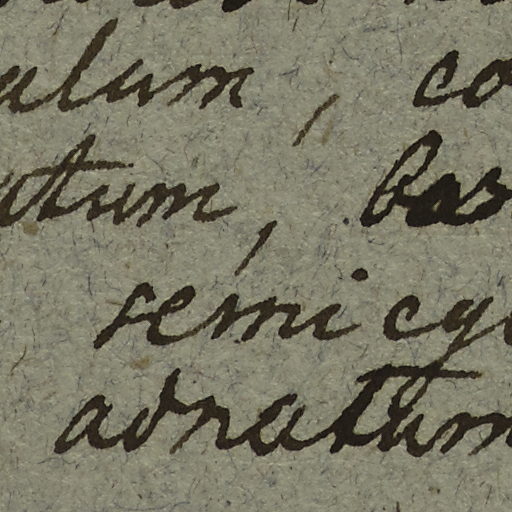 alum, co
atum, bas
semicy
adnatum